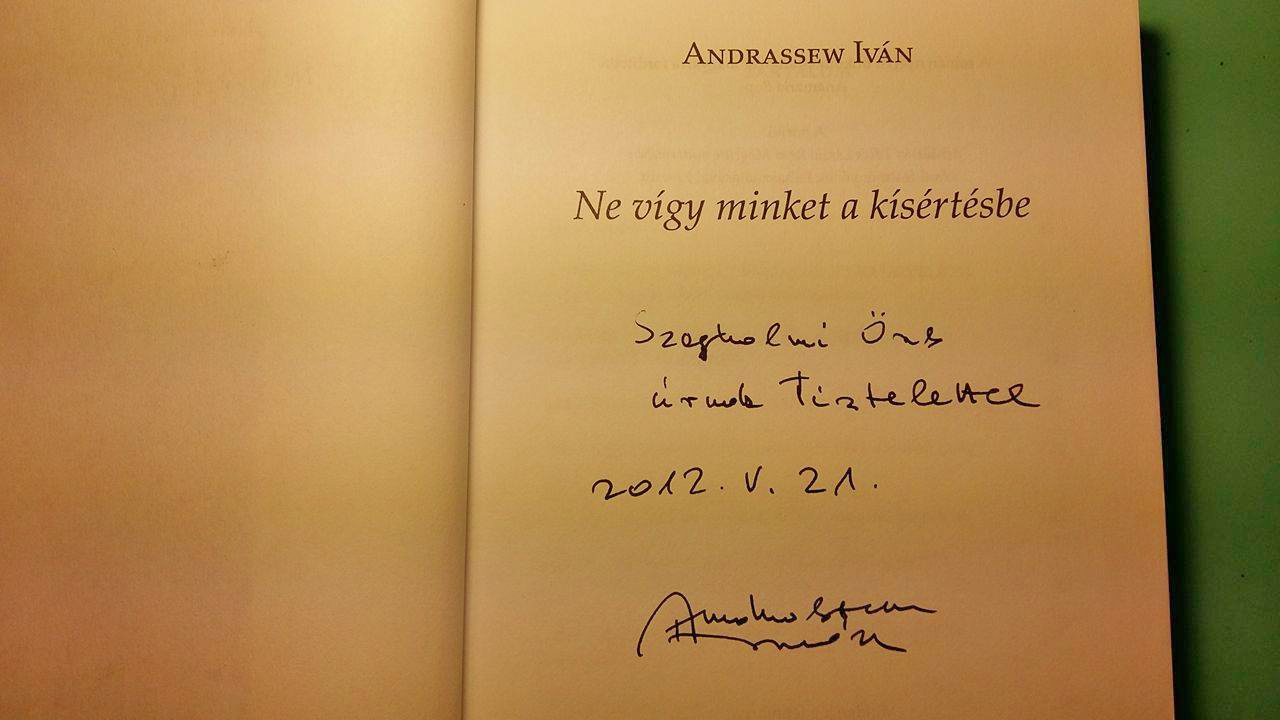 Andrassew Iván
Ne vígy minket a kísértésbe
Szegholmi Örs
úrnak Tisztelettel
2012. V. 21.
Andrassew
Iván